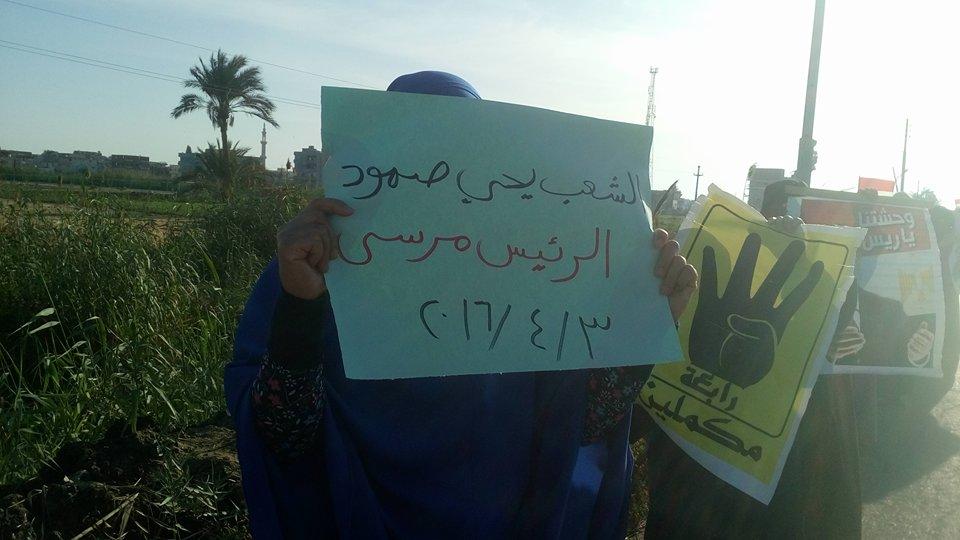 الشعب يحي صمود
الرئيس مرسى
٢٠١٦/٤/٣
رابعة
مكملين
وحشتنا
يا ريس